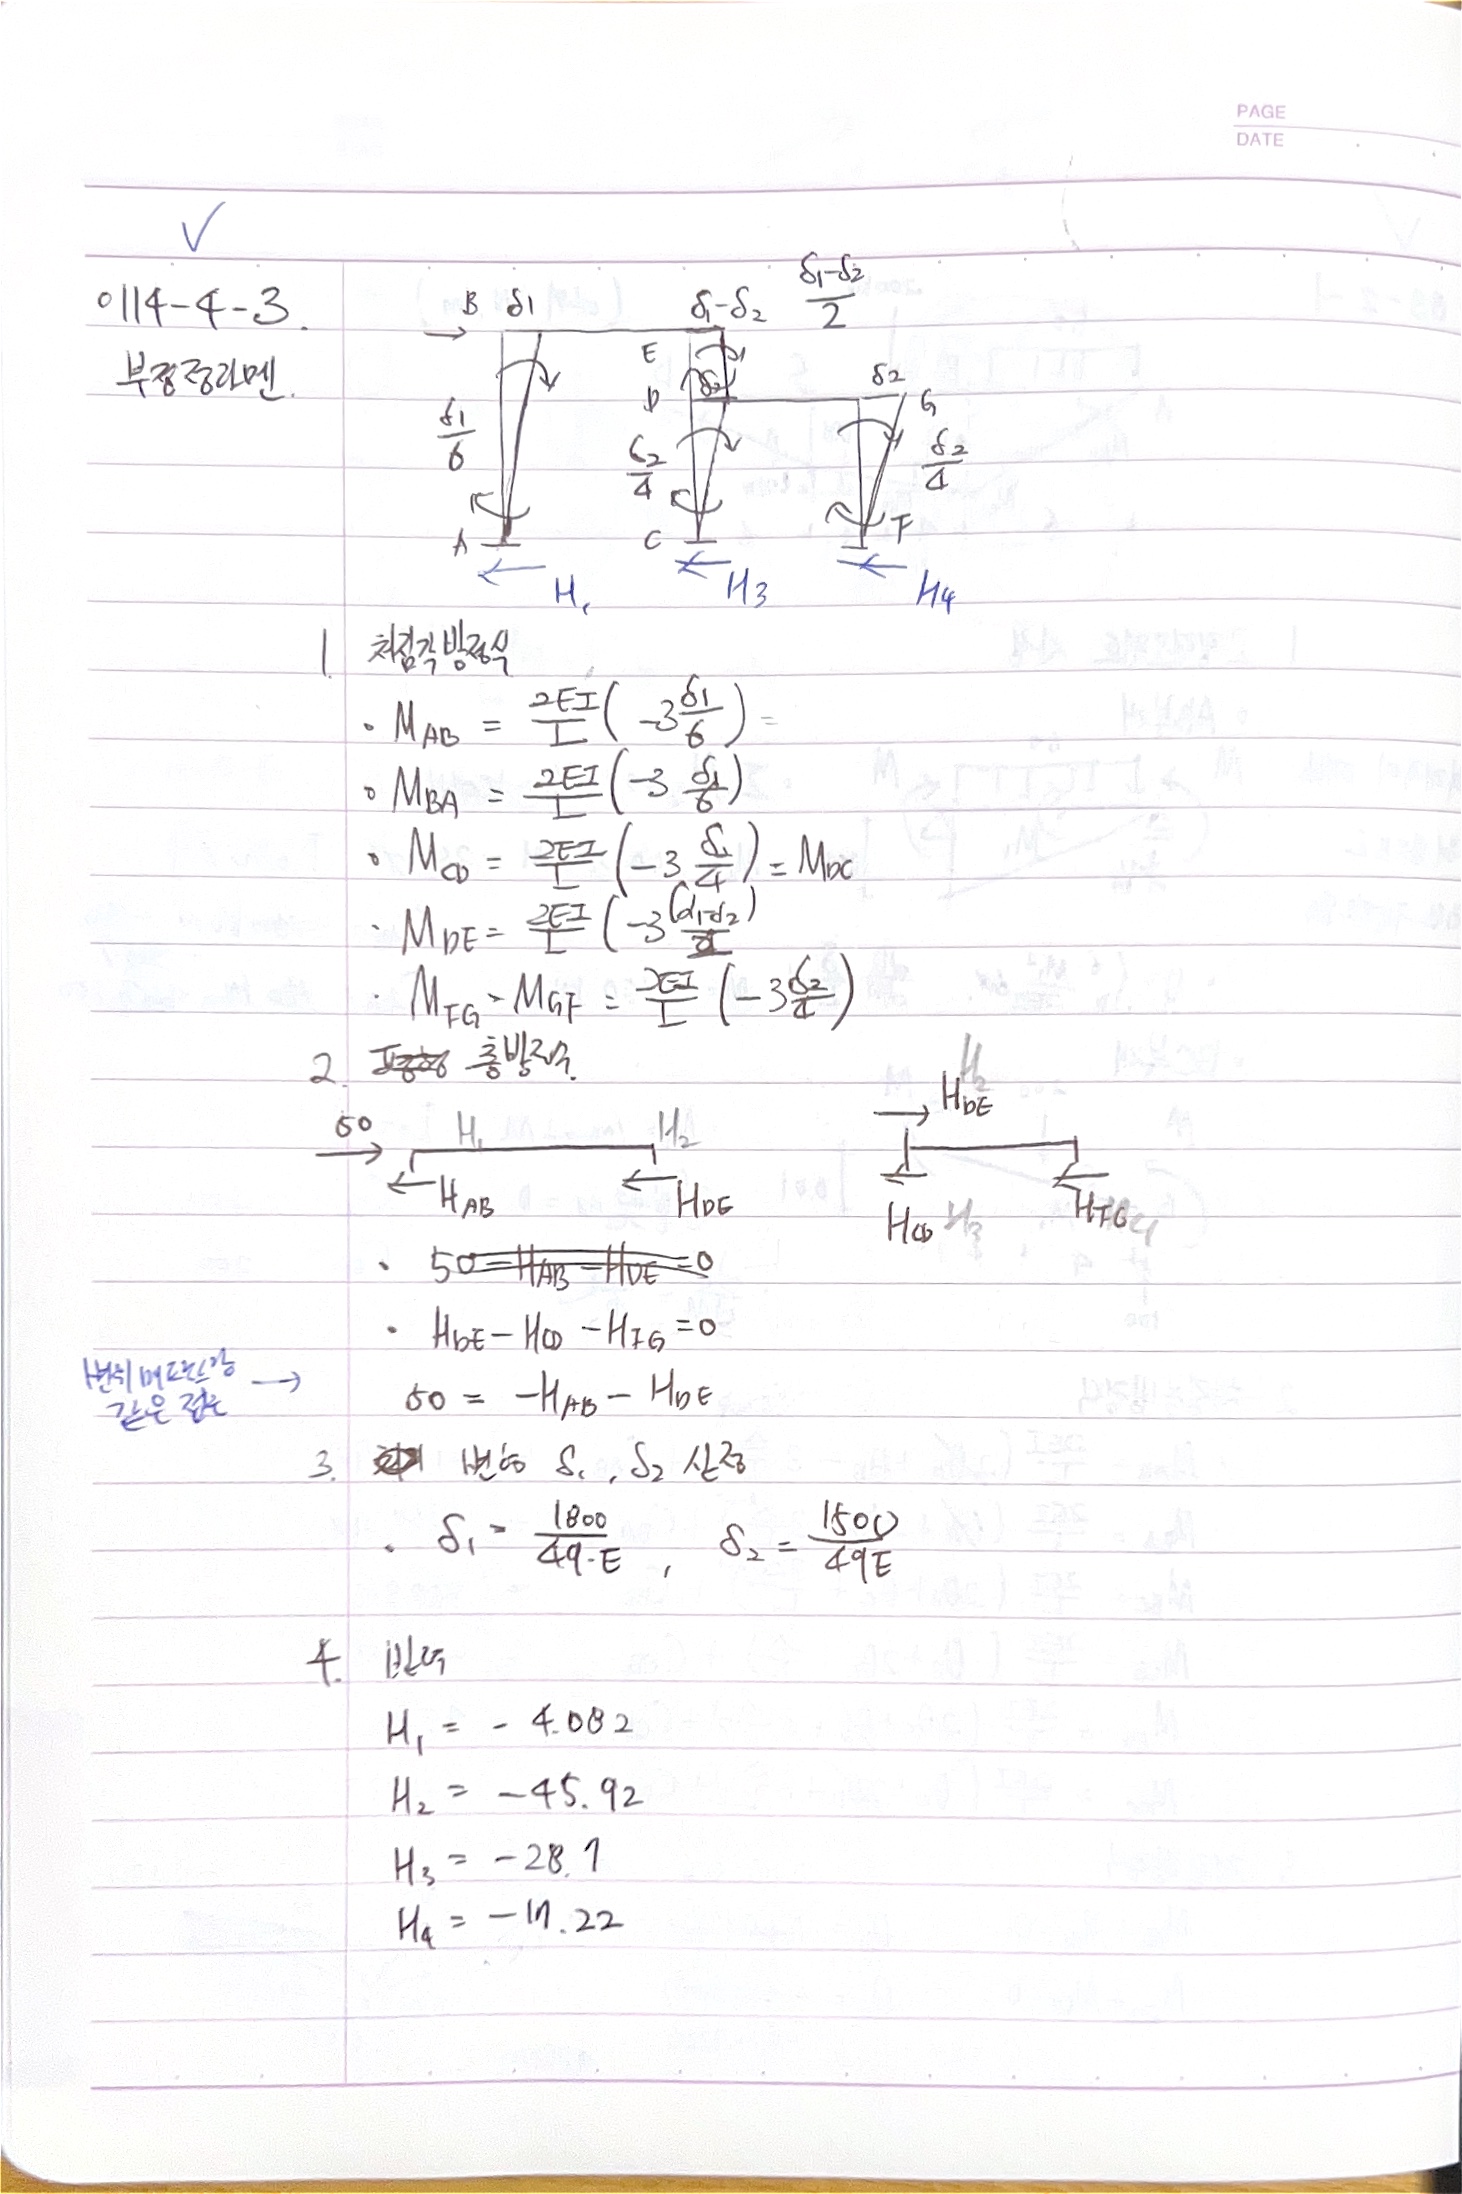 PAGE
DATE
0114-4-3.
부정정라멘.
B δ1 δ1-δ2 (δ1-δ2)/2
E
D δ2 δ2 G
δ1/6 δ2/4 δ2/4
A C F
H1 H3 H4
1. 처짐각방정식
· M_AB = 2EI/L (-3 δ1/6) =
· M_BA = 2EI/L (-3 δ1/6)
· M_CD = 2EI/L (-3 δ1/4) = M_DC
· M_DE = 2EI/L (-3 (δ1-δ2)/2
· M_FG = M_GF = 2EI/L (-3 δ2/4)
2. 층방정식.
50 H1 H2 H2 H_DE
H_AB H_DE H_CD H3 H_FG
· 50 - H_AB - H_DE = 0
· H_DE - H_CD - H_FG = 0
변위
같은
→ 50 = -H_AB - H_DE
3. 변형 δ1, δ2 산정
· δ1 = 1800/49·E , δ2 = 1500/49E
4. 반력
H1 = - 4.082
H2 = - 45.92
H3 = - 28.7
H4 = - 17.22